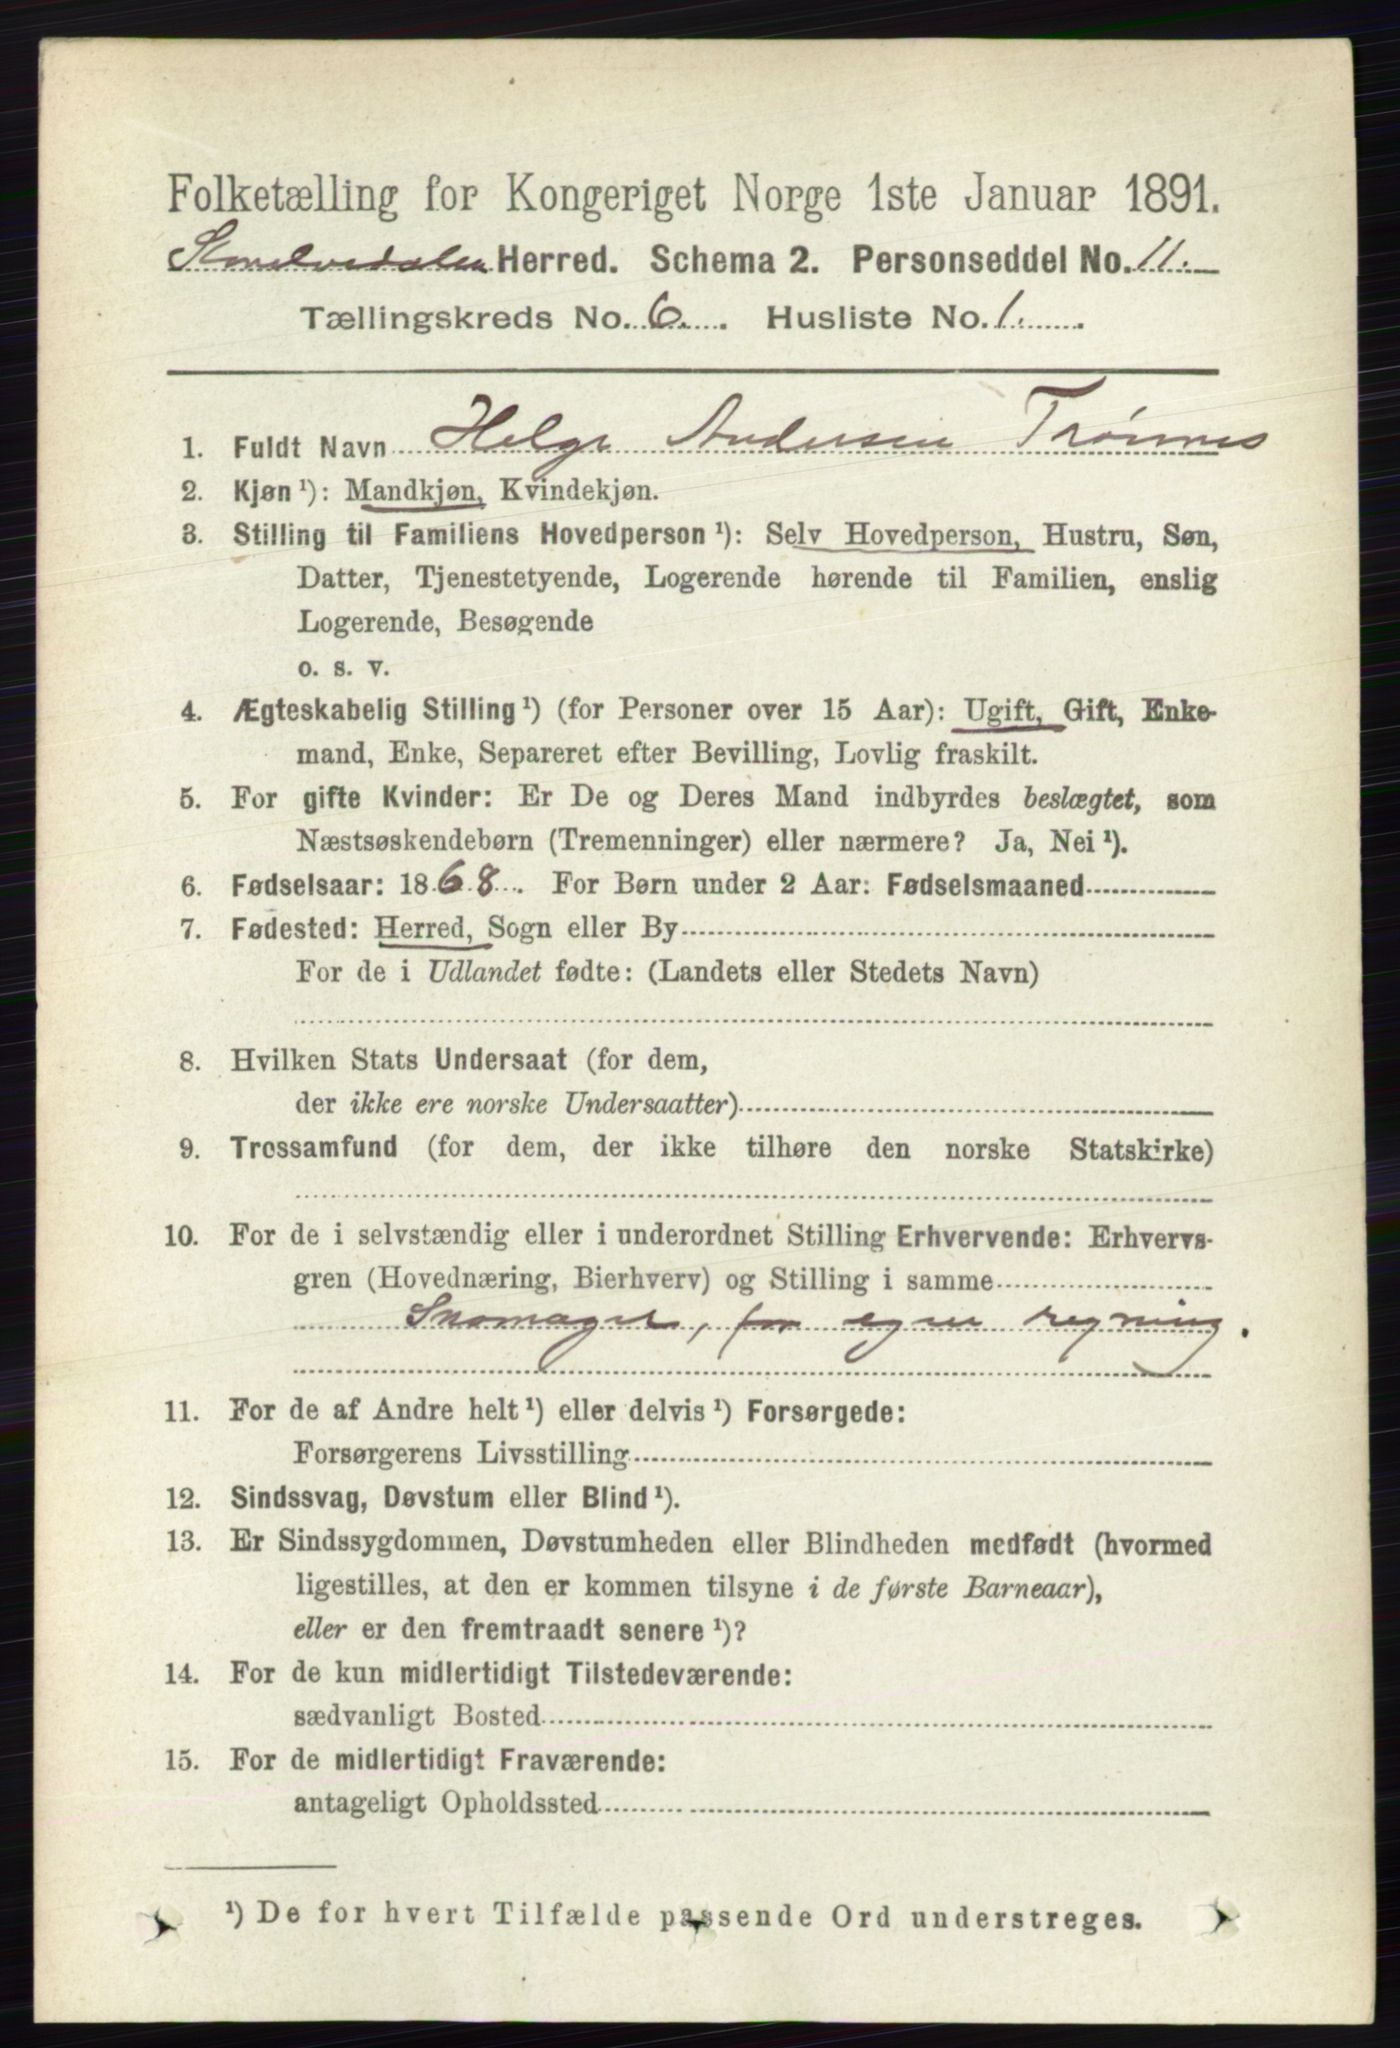 Folketælling for Kongeriget Norge 1ste Januar 1891.
Storelvedalen Herred. Schema 2. Personseddel No. 11.
Tællingskreds No. 6. Husliste No. 1.
1. Fuldt Navn Helge Andersen Trønnes
2. Kjøn¹): Mandkjøn, Kvindekjøn.
3. Stilling til Familiens Hovedperson¹): Selv Hovedperson, Hustru, Søn,
Datter, Tjenestetyende, Logerende hørende til Familien, enslig
Logerende, Besøgende
o. s. v.
4. Ægteskabelig Stilling¹) (for Personer over 15 Aar): Ugift, Gift, Enke-
mand, Enke, Separeret efter Bevilling, Lovlig fraskilt.
5. For gifte Kvinder: Er De og Deres Mand indbyrdes beslægtet, som
Næstsøskendebørn (Tremenninger) eller nærmere? Ja, Nei¹).
6. Fødselsaar: 1868. For Børn under 2 Aar: Fødselsmaaned
7. Fødested: Herred, Sogn eller By
For de i Udlandet fødte: (Landets eller Stedets Navn)
8. Hvilken Stats Undersaat (for dem,
der ikke ere norske Undersaatter)
9. Trossamfund (for dem, der ikke tilhøre den norske Statskirke)
10. For de i selvstændig eller i underordnet Stilling Erhvervende: Erhvervs-
gren (Hovednæring, Bierhverv) og Stilling i samme
Skomager, for egen regning.
11. For de af Andre helt¹) eller delvis¹) Forsørgede:
Forsørgerens Livsstilling
12. Sindssvag, Døvstum eller Blind¹).
13. Er Sindssygdommen, Døvstumheden eller Blindheden medfødt (hvormed
ligestilles, at den er kommen tilsyne i de første Barneaar),
eller er den fremtraadt senere¹)?
14. For de kun midlertidigt Tilstedeværende:
sædvanligt Bosted
15. For de midlertidigt Fraværende:
antageligt Opholdssted
¹) De for hvert Tilfælde passende Ord understreges.